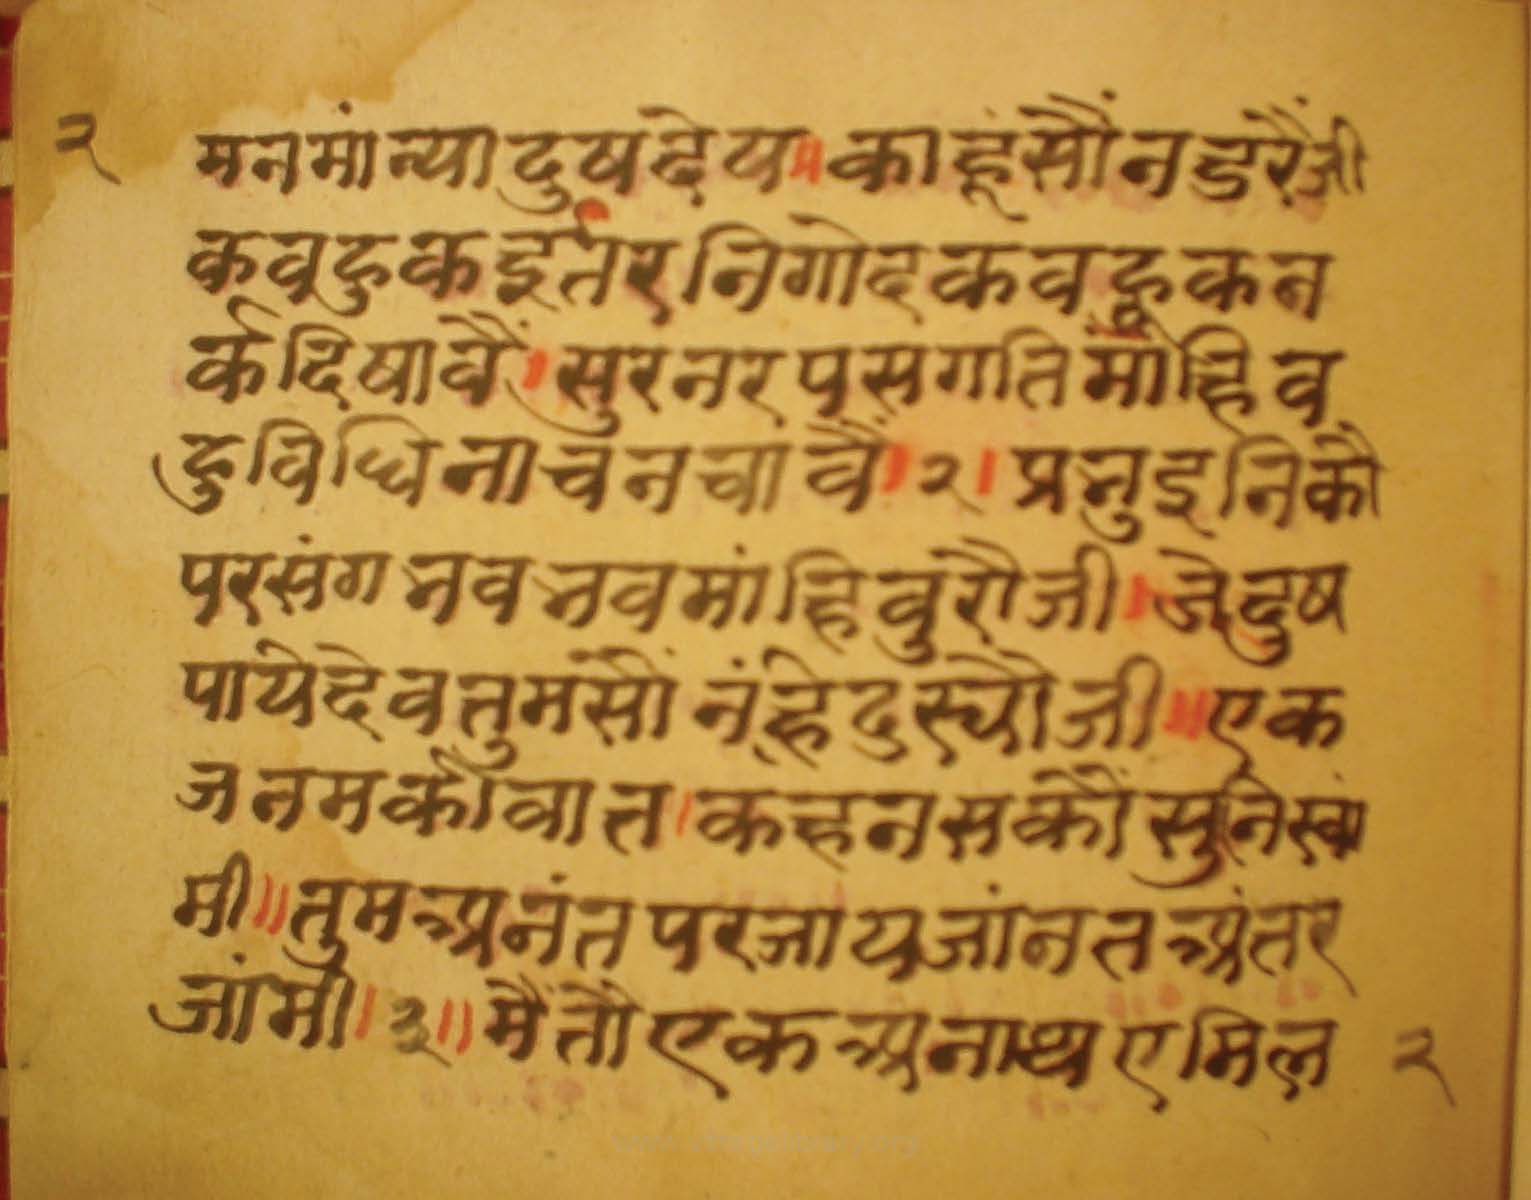 २ मनमांन्यादुषदेय॥काहूंसौंनडरैंजी
कवहुकइतरनिगोदकवहूकन
र्कदिषावैं।सुरनरपसगतिमांहिव
हुविधिनाचनचांवैं।२।प्रभुइनिकौ
परसंगभवभवमांहिवुरौजी।जेदुष
पायेदेवतुमसौंनंहेदुस्यौजी॥एक
जनमकीवात।कहनसकौंसुनिस्वां
मी॥तुमअनंतपरजायजांनतअंतर
जांमी।३॥मैंतौएकअनाथएमिल २